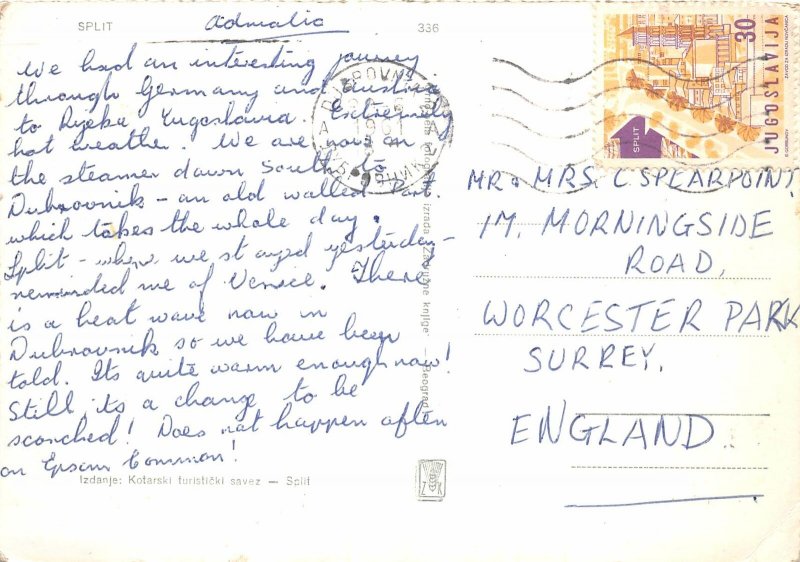 SPLIT
Admalia
336
We had an interesting journey
through Germany and Austria
to Rijeka Yugoslavia. Extremely
hot weather. We are now on
the steamer down South to
Dubrovnik - an old walled Port.
which takes the whole day.
Split - where we stayed yesterday -
reminded me of Venice. There
is a heat wave now in
Dubrovnik so we have been
told. Its quite warm enough now!
Still its a change to be
scorched! Does not happen often
on Epsom Common!
Izdanje: Kotarski turistički savez — Split
izrada Zadružne knjige — Beograd
1961
30
JUGOSLAVIJA
SPLIT
MR & MRS. C. SPEARPOINT,
17. MORNINGSIDE
ROAD,
WORCESTER PARK
SURREY.
ENGLAND.